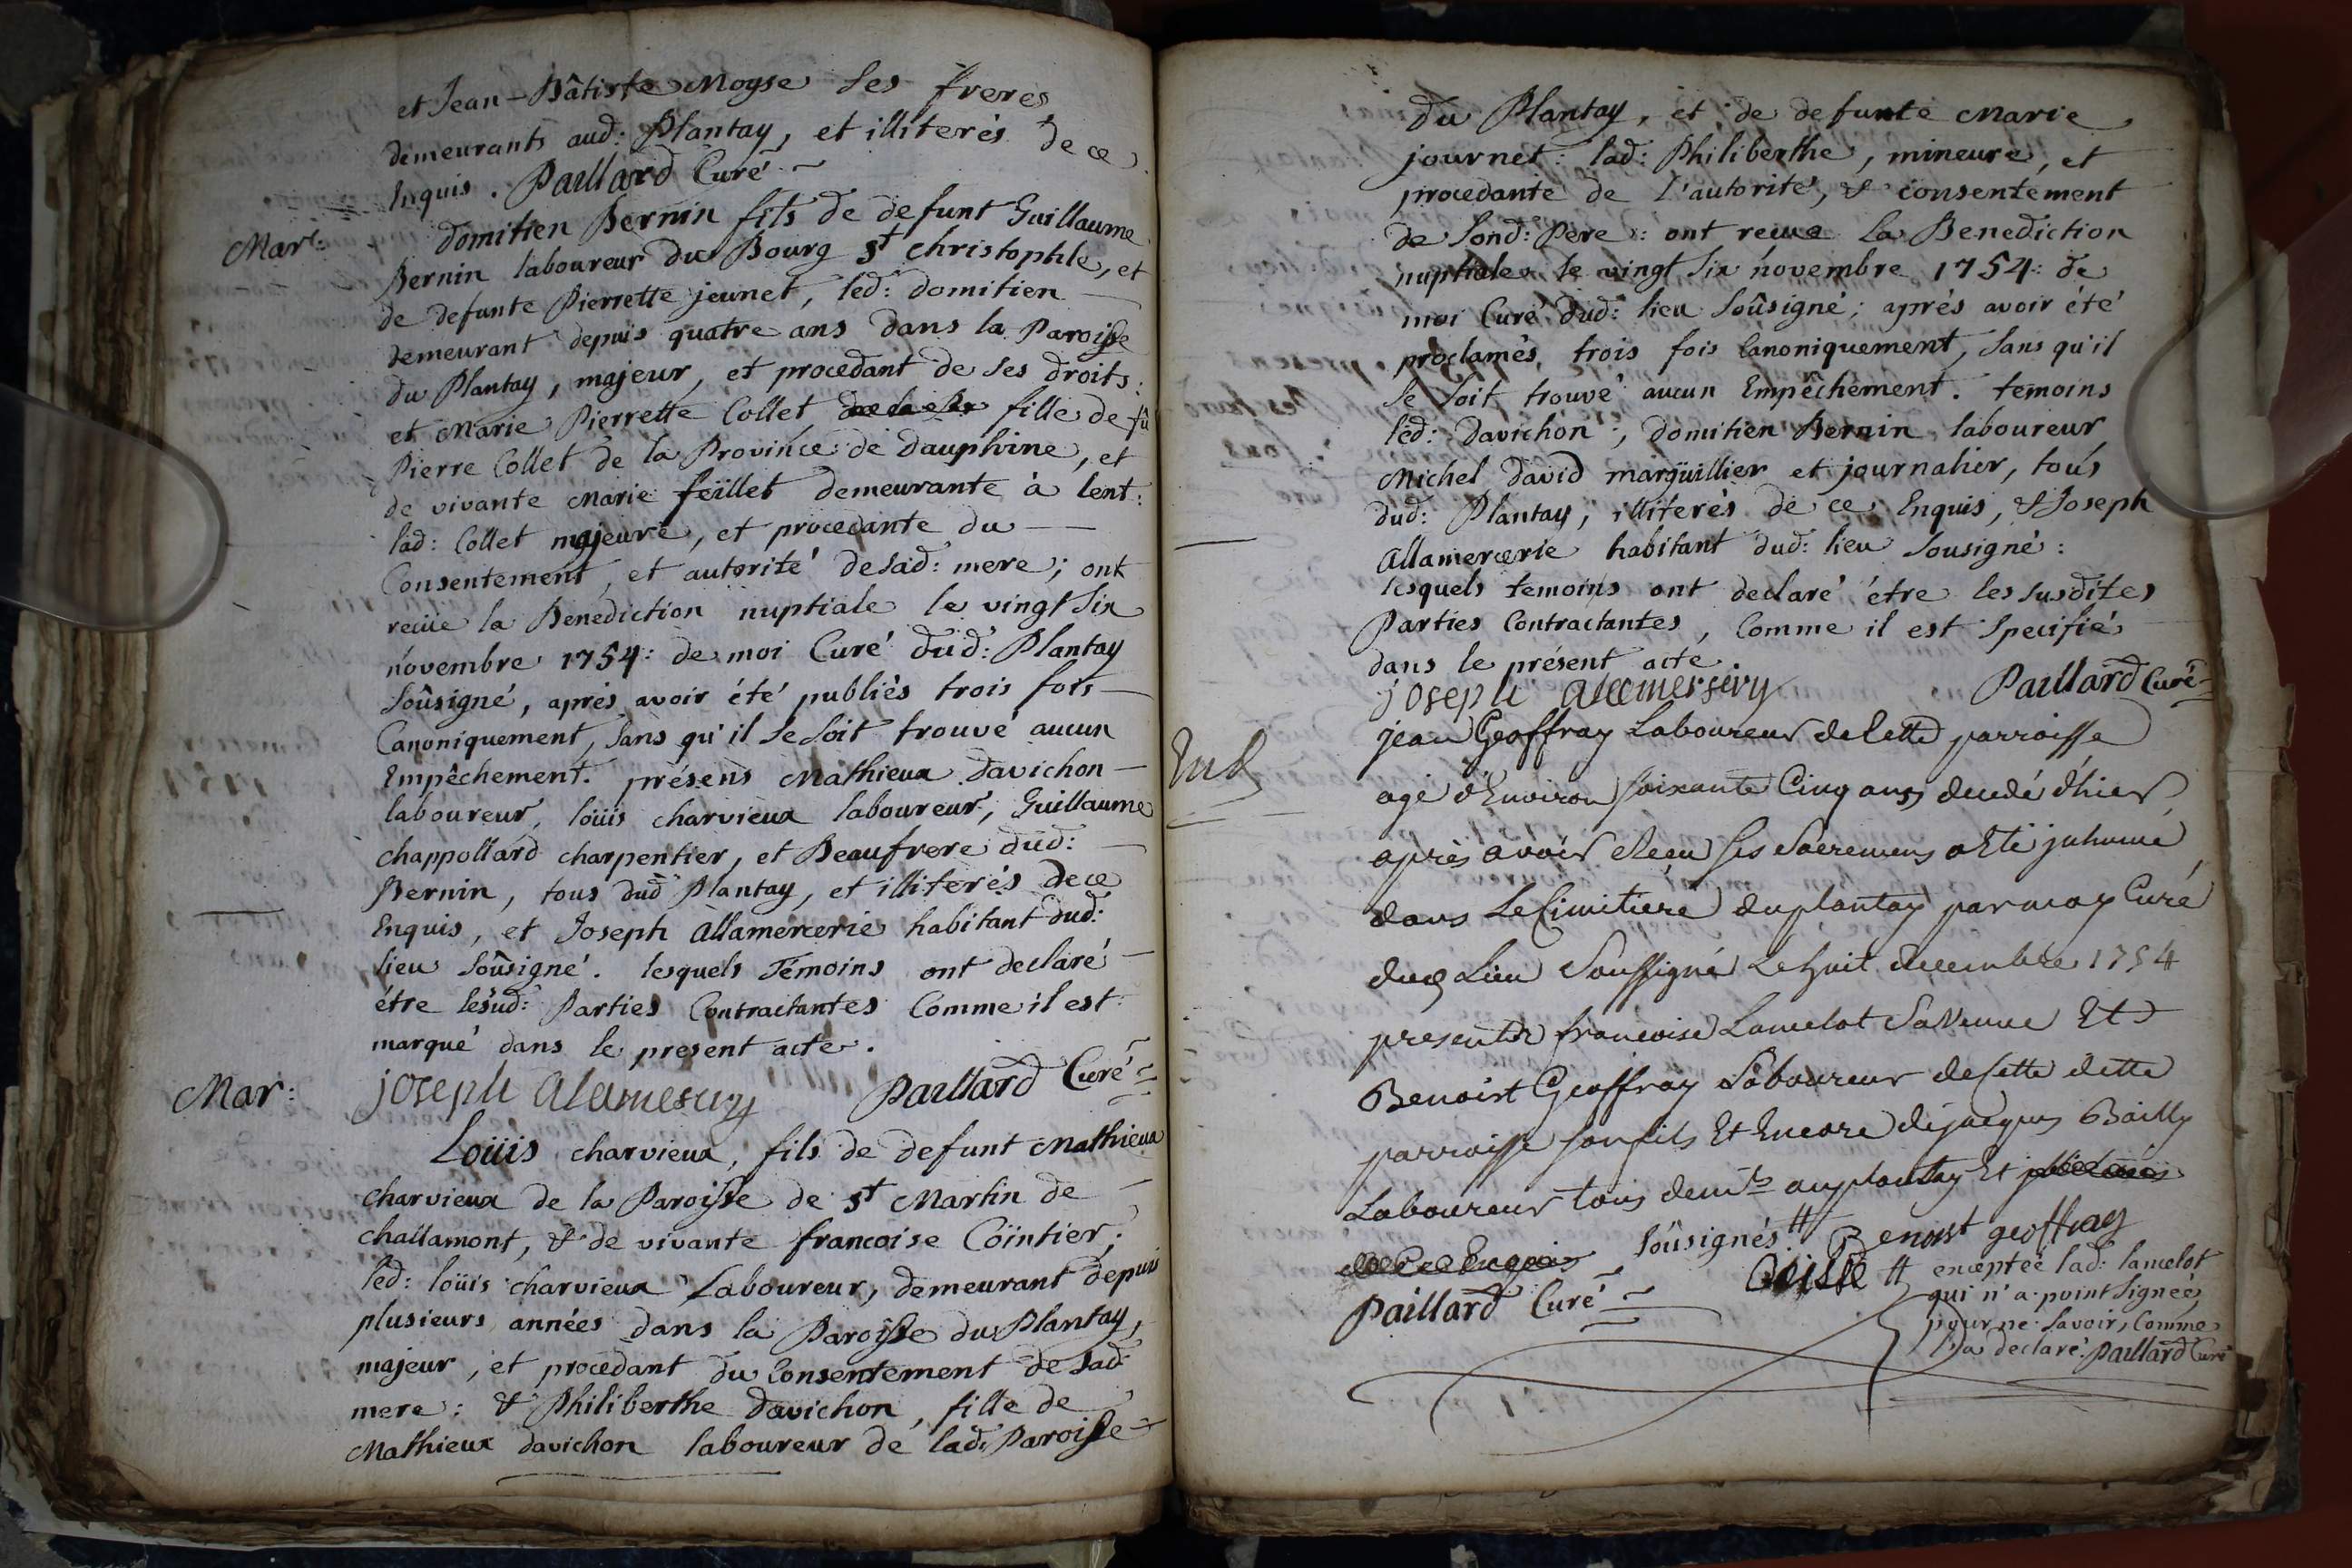 et Jean-Bâtiste Moyse ses freres
demeurants aud: Plantay, et illiterés de ce
Enquis. Paillard Curé
Mar:
domitien Bernin fils de defunt Guillaume
Bernin laboureur du Bourg St christophle, et
de defunte Pierrette jeunet, led: domitien
demeurant depuis quatre ans dans la Paroisse
du Plantay, majeur, et procedant de ses droits:
et Marie Pierrette Collet fille de fû
Pierre Collet de la Province de Dauphine, et
de vivante Marie feüillet demeurante à lent:
lad: Collet majeure, et procedante du
Consentement, et autorité de sad: mere; ont
recüe la Benediction nuptiale le vingt six
novembre 1754: de moi Curé dud: Plantay
soûsigné, aprés avoir été publiés trois fois
Canoniquement, sans qu'il se soit trouvé aucun
Empêchement. présens Mathieux davichon
laboureur, loüis charvieux laboureur, Guillaume
chappollard charpentier, et Beaufrere dud:
Bernin, tous dud Plantay, et illiterés de ce
Enquis, et Joseph Allamercerie habitant dud:
lieu soûsigné. lesquels Témoins ont declaré
étre lesud: Parties Contractantes Comme il est
marqué dans le present acte.
joseph alamersery Paillard Curé
Mar:
Loüis charvieux, fils de defunt Mathieux
charvieux de la Paroisse de St Martin de
challamont, & de vivante francoise Cointier;
led: loüis charvieux Laboureur, demeurant depuis
plusieurs années dans la Paroisse du Plantay,
majeur, et procedant du Consentement de sad:
mere: & Philiberthe davichon, fille de
Mathieux davichon laboureur de lad: Paroisse
du Plantay, et de defunte Marie
journet: lad: Philiberthe, mineure, et
procedante de l'autorité, & consentement
de sond: Pere: ont recue la Benediction
nuptiale le vingt six novembre 1754: de
moi Curé dud: lieu soûsigné; aprés avoir été
proclamés trois fois Canoniquement, sans qu'il
se soit trouvé aucun Empêchement. temoins
led: davichon, domitien Bernin laboureur
Michel david margüillier et journalier, tous
dud: Plantay, illiterés de ce Enquis, & Joseph
Allamercerie habitant dud: lieu sousigné:
lesquels temoins ont declaré étre les susdites
Parties Contractantes, Comme il est specifié
dans le présent acte.
joseph alamersery Paillard Curé
jean Geoffray Laboureur de cette parroisse
agé d'Environ soixante Cinq ans decedé d'hier
après avoir Receu ses sacremens a Eté jnhumé
dans Le Cimitiere du plantay par moy Curé
dud Lieu Soussigné Le huit decembre 1754
presents francoise Lamelot Sa Veuve Et
Benoist Geoffray Laboureur de Cette dette
parroisse son fils Et Encore de jacques Bailly
Laboureur tous demts au plantay Et
soûsignés # Benoist geoffray
Paillard Curé
# exceptéé lad: lamelot
qui n'a point signéé
pour ne savoir, Comme
l'a declaré: Paillard Curé